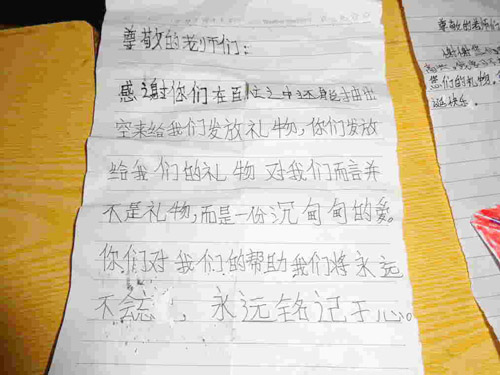 尊敬的老师们：
感谢你们在百忙之中还能抽出
空来给我们发放礼物，你们发放
给我们的礼物对我们而言并
不是礼物，而是一份沉甸甸的爱。
你们对我们的帮助我们将永远
不会忘，永远铭记于心。
尊敬的老师们
谢谢您
您们的礼物。
诞快乐。